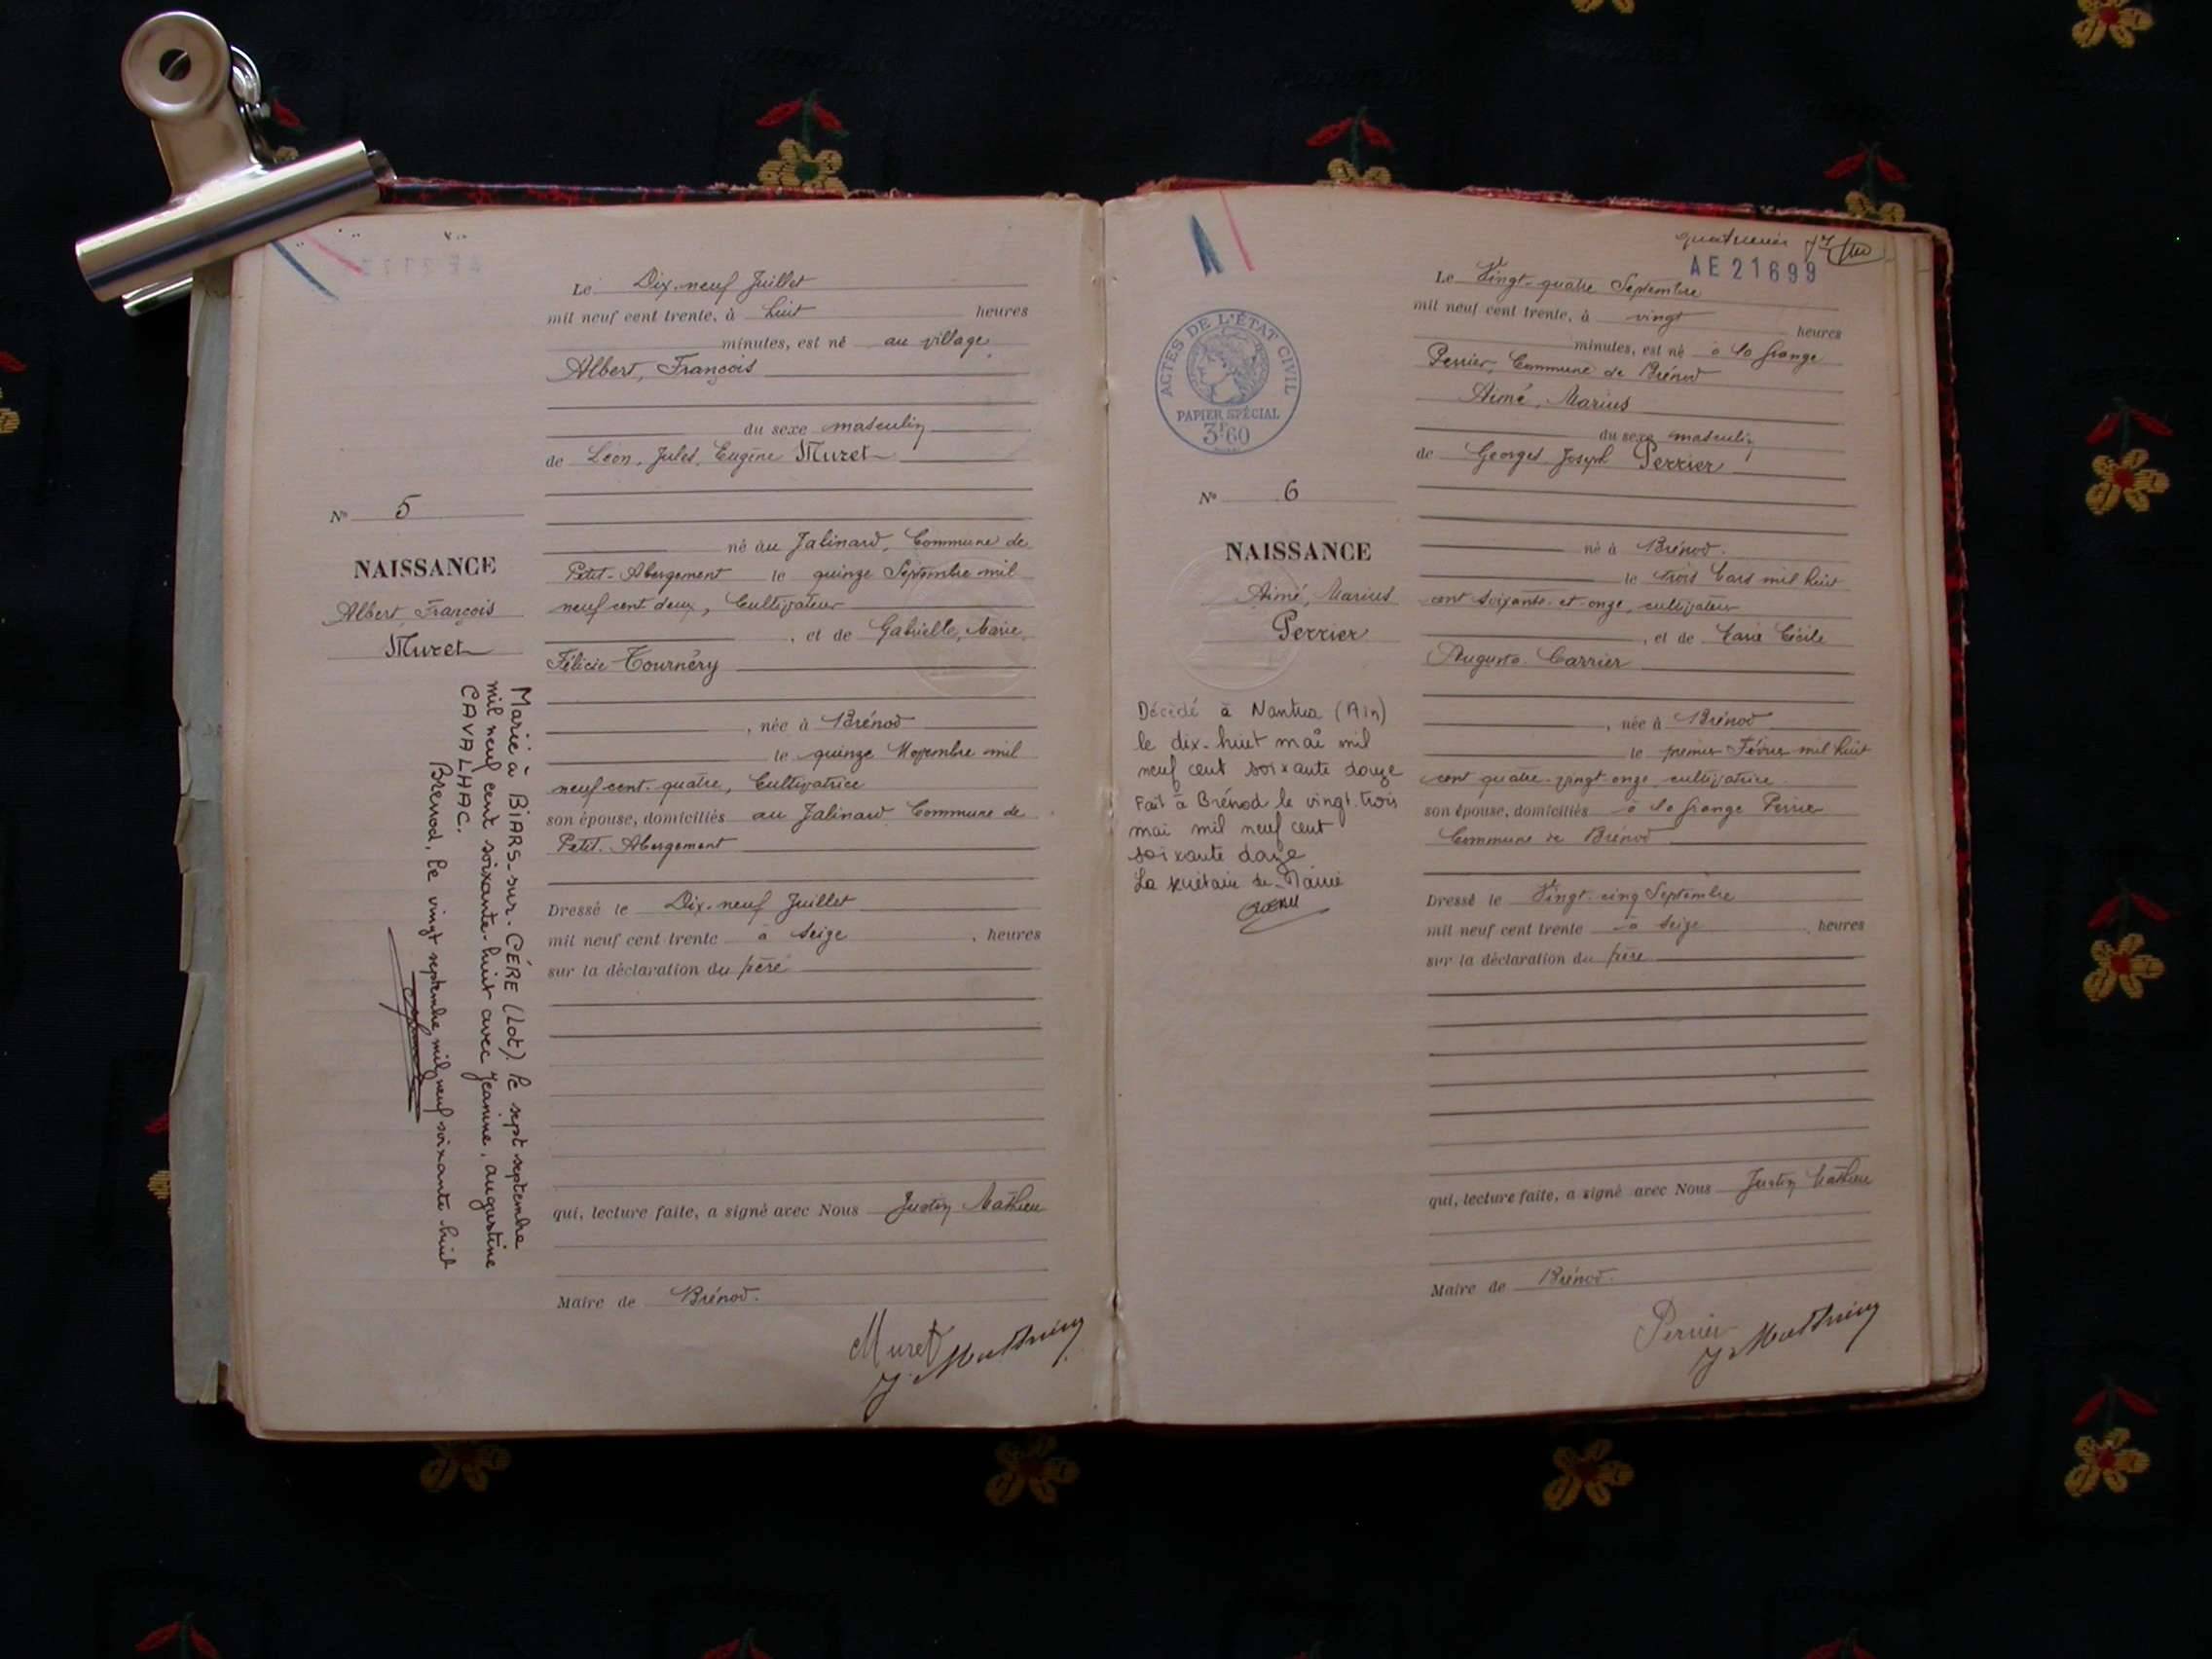 Le Dix-neuf Juillet
mil neuf cent trente, à huit heures
minutes, est né au village
Albert, François
du sexe masculin
de Léon, Jules, Eugène Muret
né au Jalinard, Commune de
Petit-Abergement le quinze Septembre mil
neuf cent deux, Cultivateur
, et de Gabrielle, Marie,
Félicie Tournéry
, née à Brénod
le quinze Novembre mil
neuf cent quatre, Cultivatrice
son épouse, domiciliés au Jalinard Commune de
Petit-Abergement
Dressé le Dix-neuf Juillet
mil neuf cent trente à seize , heures
sur la déclaration du père
qui, lecture faite, a signé avec Nous Justin Mathieu
Maire de Brénod.
Muret
J. Mathieu
No 5
NAISSANCE
Albert, François
Muret
Marié à BIARS-sur-CÉRE (Lot) le sept septembre
mil neuf cent soixante-huit avec Jeanine, augustine
CAVALHAC.
Brenod, le vingt septembre mil neuf soixante huit
quatrième
AE 21699
ACTES DE L'ÉTAT CIVIL
PAPIER SPÉCIAL
3F60
No 6
NAISSANCE
Aimé, Marius
Perrier
Décédé à Nantua (Ain)
le dix-huit mai mil
neuf cent soixante douze
Fait à Brénod le vingt-trois
mai mil neuf cent
soixante douze
La secrétaire de Mairie
Le Vingt-quatre Septembre
mil neuf cent trente, à vingt heures
minutes, est né à la Grange
Perrier, Commune de Brénod
Aimé, Marius
du sexe masculin
de Georges Joseph Perrier
né à Brénod.
le trois Mars mil huit
cent soixante-et-onze, cultivateur
, et de Marie Cécile
Augusta Carrier
, née à Brénod
le premier Février mil huit
cent quatre-vingt-onze, cultivatrice
son épouse, domiciliés à la Grange Perrier
Commune de Brénod
Dressé le Vingt-cinq Septembre
mil neuf cent trente à seize , heures
sur la déclaration du père
qui, lecture faite, a signé avec Nous Justin Mathieu
Maire de Brénod.
Perrier
J. Mathieu